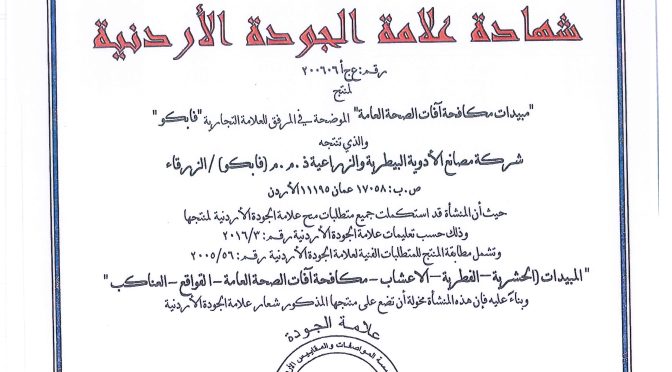 شهادة علامة الجودة الأردنية
رقم: ع ج أ ٢٠٠٦٠٦
لمنتج
"مبيدات مكافحة آفات الصحة العامة" الموضحة في المرفق للعلامة التجارية "فابكو"
والذي تنتجه
شركة مصانع الأدوية البيطرية والزراعية ذ.م.م (فابكو) / الزرقاء
ص.ب: ١٧٠٥٨ عمان ١١١٩٥ الأردن
حيث أن المنشأة قد استكملت جميع متطلبات منح علامة الجودة الأردنية لمنتجها
وذلك حسب تعليمات علامة الجودة الأردنية رقم: ٢٠١٦/٣
وتشمل مطابقة المنتج للمتطلبات الفنية لعلامة الجودة الأردنية رقم: ٢٠٠٥/٥٦
"المبيدات (الحشرية – الفطرية – الاعشاب – مكافحة آفات الصحة العامة – القواقع – العناكب"
وبناءً عليه فإن هذه المنشأة مخولة أن تضع على منتجها المذكور شعار علامة الجودة الأردنية
علامة الجودة
المواصفات والمقاييس